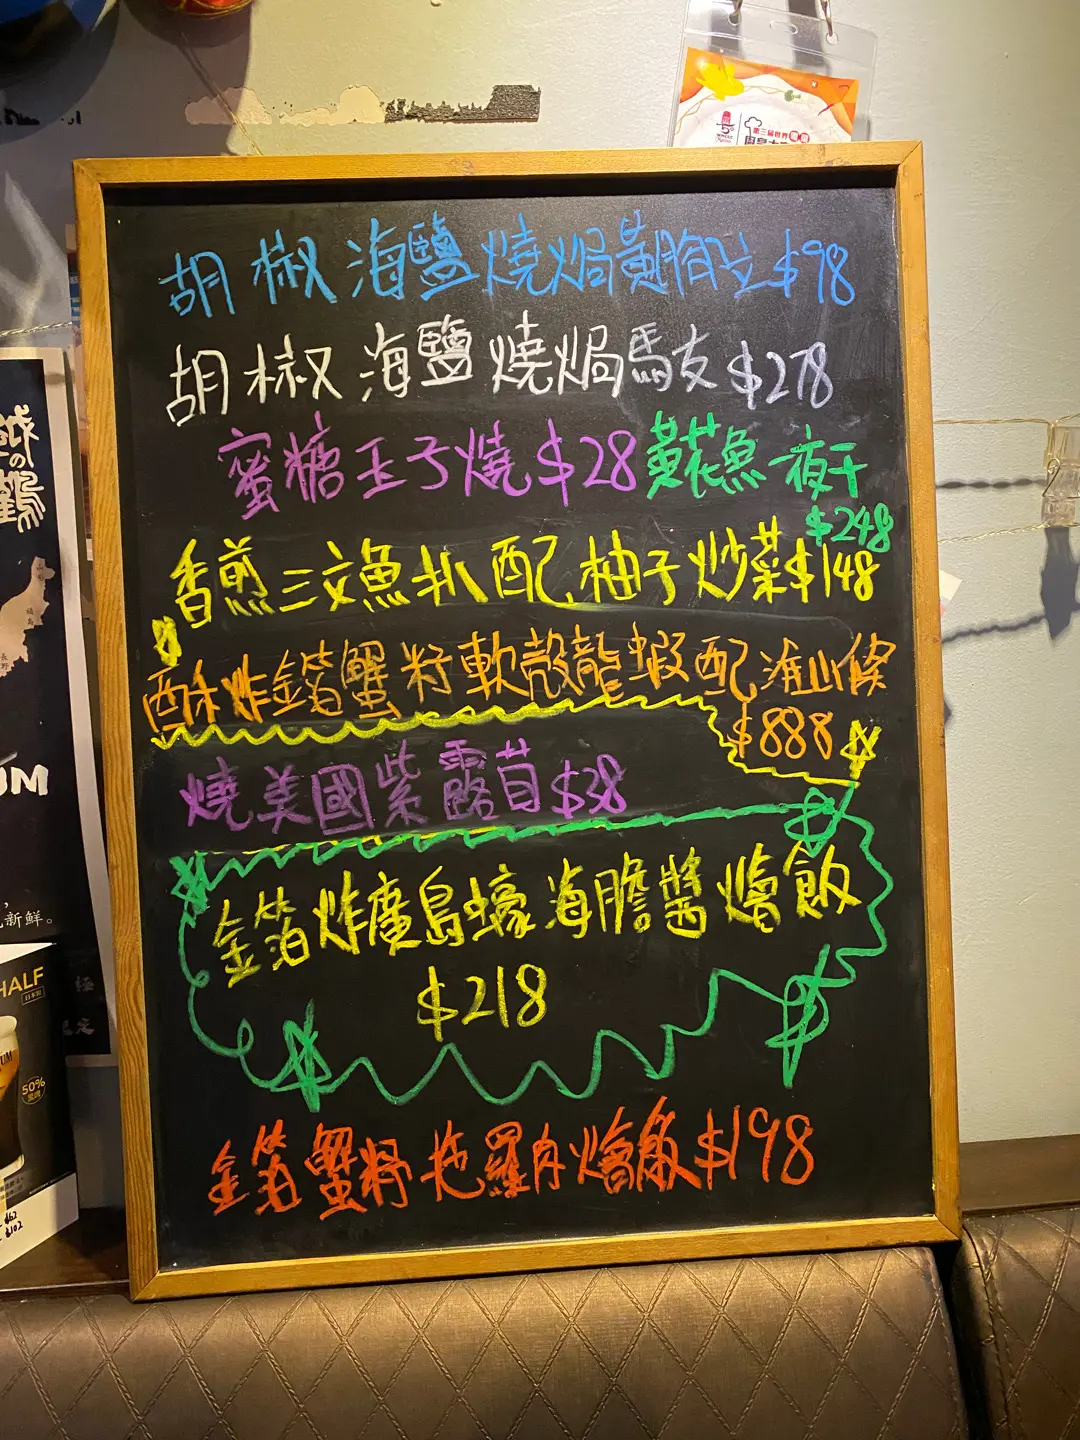 第三屆世界
胡椒海鹽燒焗黃胸立$98
胡椒海鹽燒焗馬友$278
蜜糖玉子燒$28
黃花魚一夜干
$248
香煎三文魚扒配柚子炒菜$148
酥炸金箔蟹籽軟殼龍蝦配淮山條
$888
燒美國紫露苜$38
金箔炸廣島蠔海膽醬燴飯
$218
金箔蟹籽拖羅肉燴飯$198
UM
新鮮。
HALF
50%